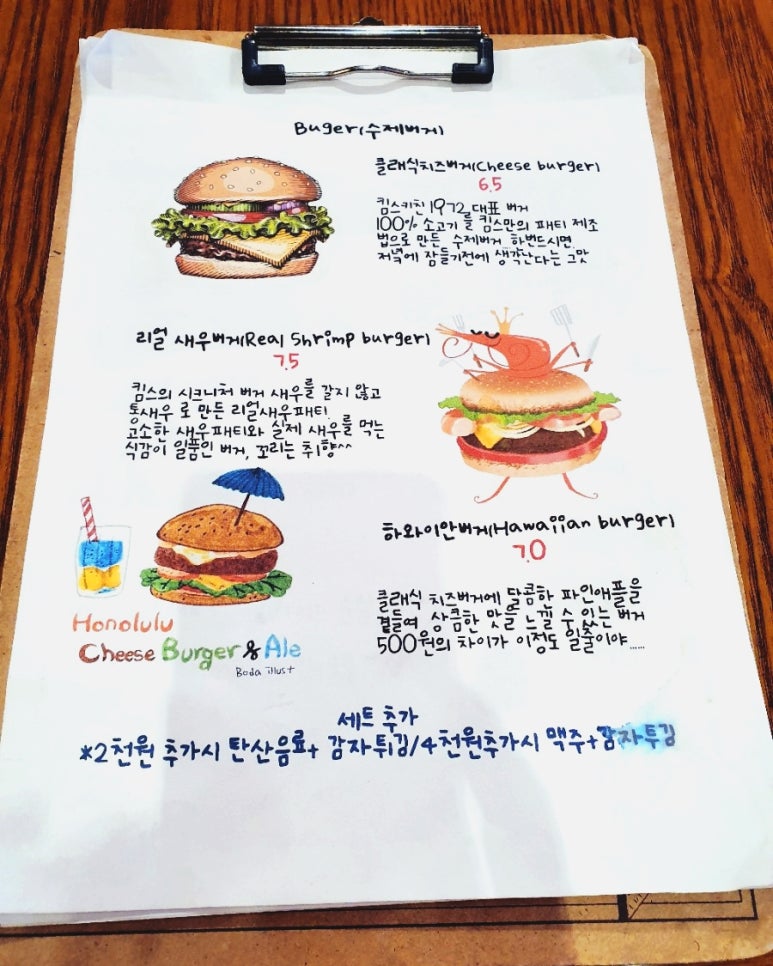 Buger(수제버거)
클래식치즈버거(Cheese burger)
6.5
킴스키친1972 대표 버거
100% 소고기 를 킴스만의 패티 제조
법으로 만든 수제버거. 한번드시면
저녁에 잠들기전에 생각난다는 그맛
리얼 새우버거(Real Shrimp burger)
7.5
킴스의 시크니처 버거 새우를 갈지 않고
통새우 로 만든 리얼새우패티!
고소한 새우패티와 실제 새우를 먹는
식감이 일품인 버거, 꼬리는 취향^^
하와이안버거(Hawaiian burger)
7.0
클래식 치즈버거에 달콤한 파인애플을
곁들여 상큼한 맛을 느낄 수 있는 버거
500원의 차이가 이정도 일줄이야......
Honolulu
Cheese Burger & Ale
Boda illust
세트 추가
*2천원 추가시 탄산음료+ 감자튀김/4천원추가시 맥주+감자튀김